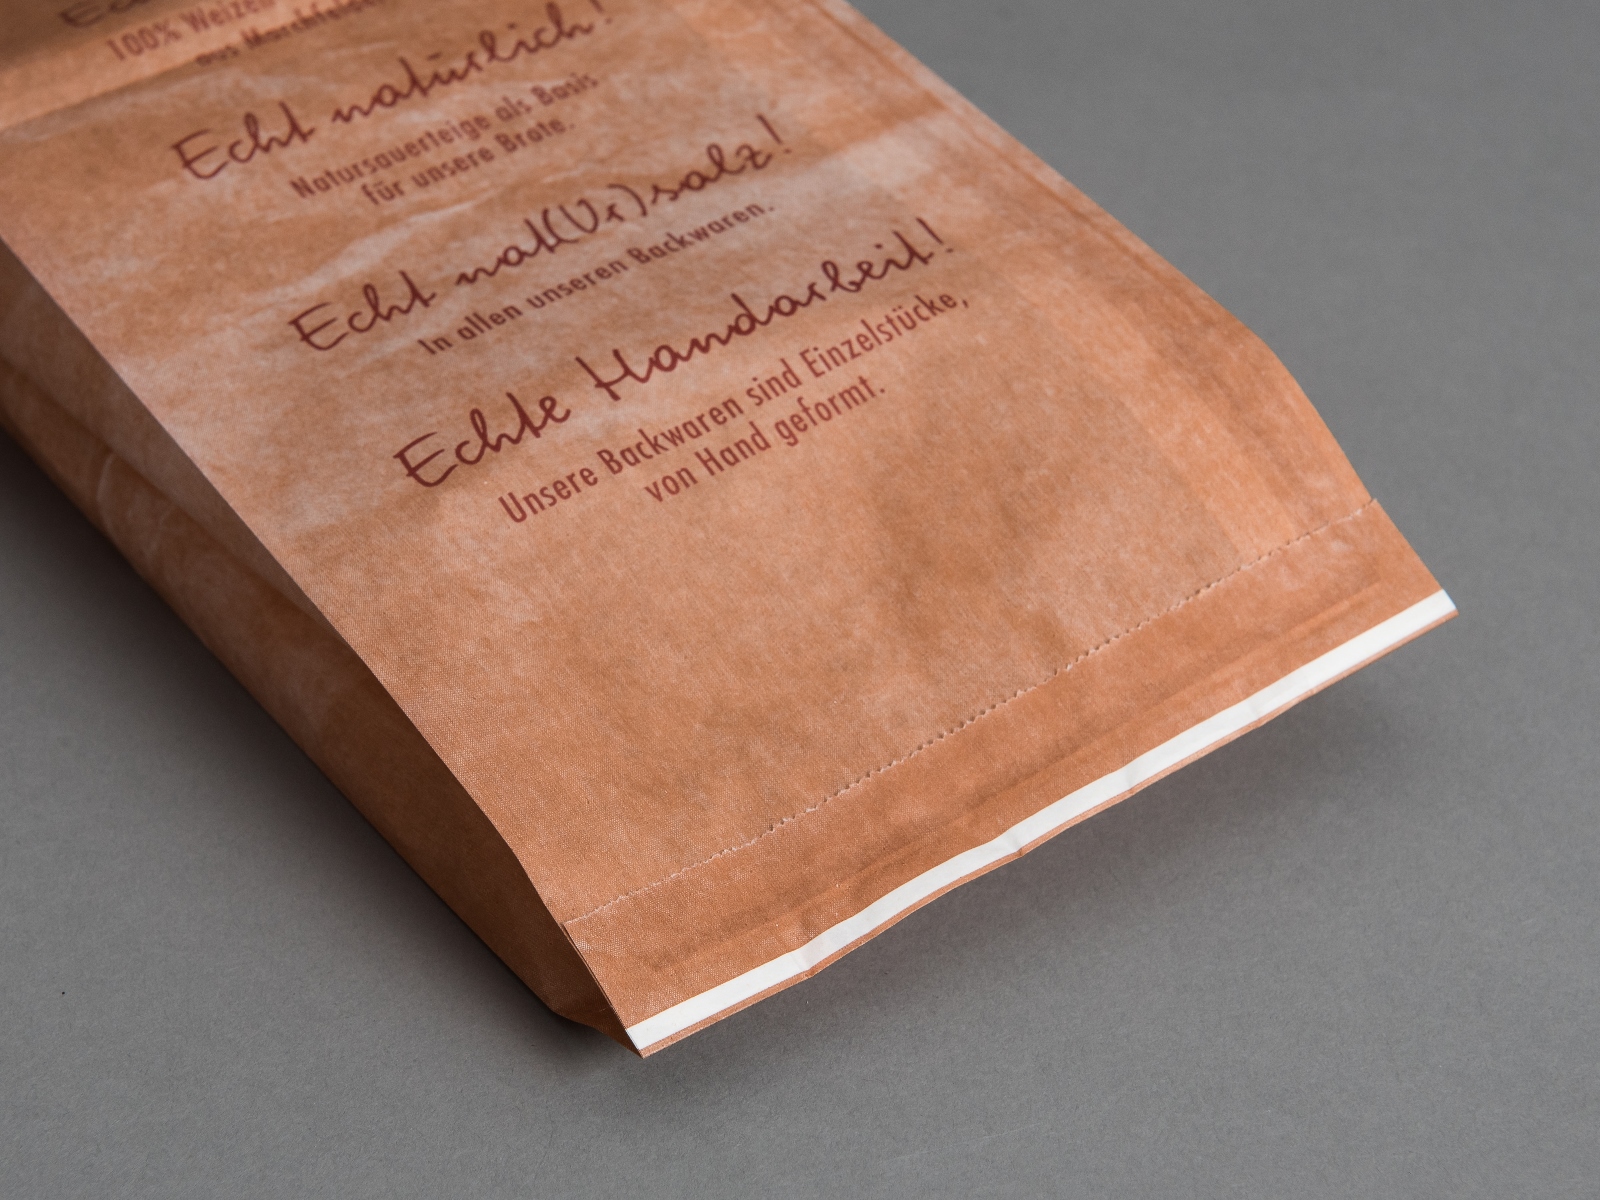 100% Weizen
aus Marchfelder
Echt natürlich!
Natursauerteige als Basis
für unsere Brote.
Echt nat(Ur)salz!
In allen unseren Backwaren.
Echte Handarbeit!
Unsere Backwaren sind Einzelstücke,
von Hand geformt.